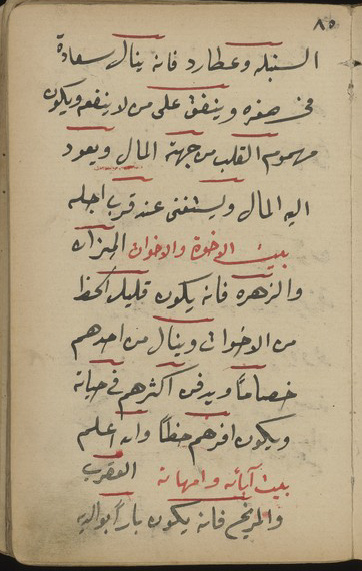 ٨٥
السنبله وعطارد فانه ينال سعادة
في صغره وينفق على من لا ينفعه ويكون
مهموم القلب من جهة المال ويعود
اليه المال ويستغنى عند قرب اجله
بيت الاخوة والاخوان الميزان
والزهره فانه يكون قليل الحظ
من الاخوان وينال من احدهم
خصاماً ويدفن اكثرهم في حياته
ويكون اوفرهم حظاً والله اعلم
بيت آبائه وامهاته العقرب
والمريخ فانه يكون باراً بوالديه